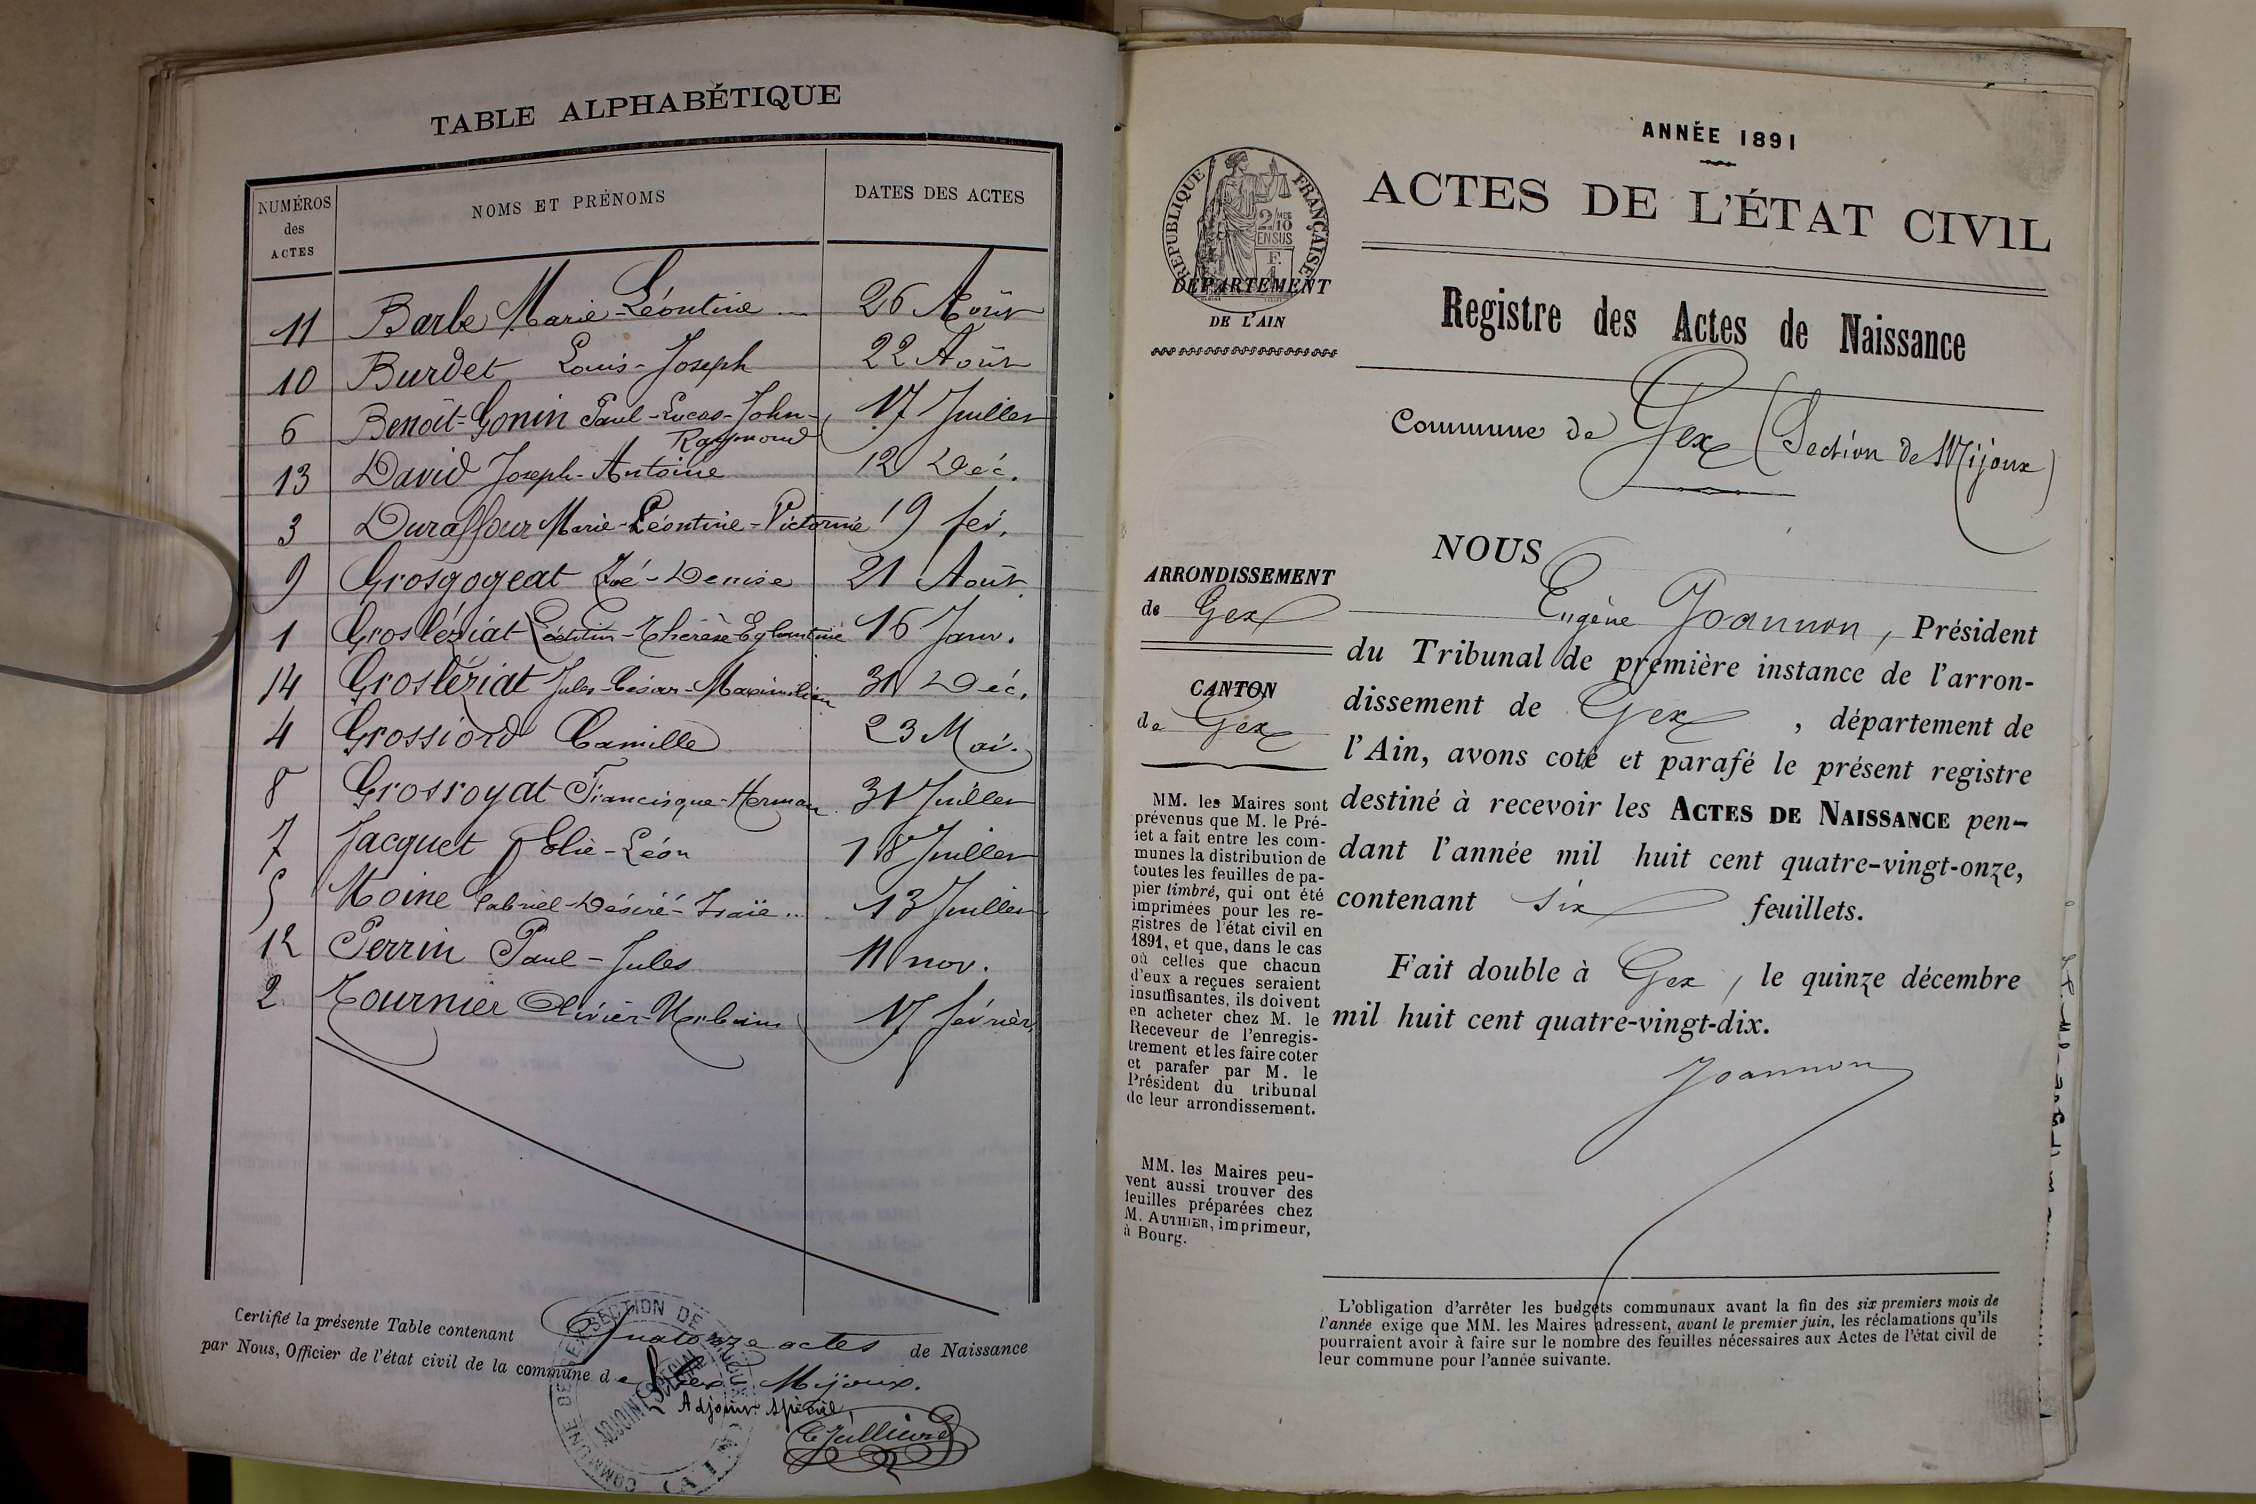 TABLE ALPHABÉTIQUE
NUMÉROS des ACTES
NOMS ET PRÉNOMS
DATES DES ACTES
11 Barbe Marie-Léontine 26 Août
10 Burdet Louis-Joseph 22 Août
6 Benoît-Gonin Paul-Lucas-John- 17 Juillet
Raymond
13 David Joseph-Antoine 12 Déc.
3 Duraffour Marie-Léontine-Victorine 19 fév.
9 Grosgogeat Zoé-Denise 21 Août
1 Grosléziat Thérèse Eglantine 16 Janv.
14 Grosléziat Jules-César-Maximilien 31 Déc.
4 Grossiord Camille 23 Mai.
8 Grosroyat Francisque-Herman 31 Juillet
7 Jacquet Elie-Léon 18 Juillet
5 Moine Gabriel-Désiré-Isaïe 13 Juillet
12 Perrin Paul-Jules 11 nov.
2 Tournier Olivier-Urbain 17 février
Certifié la présente Table contenant Quatorze actes de Naissance
par Nous, Officier de l'état civil de la commune de Gex Mijoux.
Adjoint spécial,
COMMUNE DE GEX SECTION DE MIJOUX
ADJOINT SPÉCIAL
(AIN)
ANNÉE 1891
ACTES DE L'ÉTAT CIVIL
RÉPUBLIQUE FRANÇAISE
2/10
EN SUS
F.
1
DÉPARTEMENT
DE L'AIN
Registre des Actes de Naissance
Commune de Gex (Section de Mijoux)
ARRONDISSEMENT
de Gex
CANTON
de Gex
MM. les Maires sont
prévenus que M. le Pré-
fet a fait entre les com-
munes la distribution de
toutes les feuilles de pa-
pier timbré, qui ont été
imprimées pour les re-
gistres de l'état civil en
1891, et que, dans le cas
où celles que chacun
d'eux a reçues seraient
insuffisantes, ils doivent
en acheter chez M. le
Receveur de l'enregis-
trement et les faire coter
et parafer par M. le
Président du tribunal
de leur arrondissement.
MM. les Maires peu-
vent aussi trouver des
feuilles préparées chez
M. AUTHIER, imprimeur,
à Bourg.
NOUS
Eugène Joannon, Président
du Tribunal de première instance de l'arron-
dissement de Gex, département de
l'Ain, avons coté et parafé le présent registre
destiné à recevoir les ACTES DE NAISSANCE pen-
dant l'année mil huit cent quatre-vingt-onze,
contenant six feuillets.
Fait double à Gex, le quinze décembre
mil huit cent quatre-vingt-dix.
Joannon
L'obligation d'arrêter les budgets communaux avant la fin des six premiers mois de
l'année exige que MM. les Maires adressent, avant le premier juin, les réclamations qu'ils
pourraient avoir à faire sur le nombre des feuilles nécessaires aux Actes de l'état civil de
leur commune pour l'année suivante.